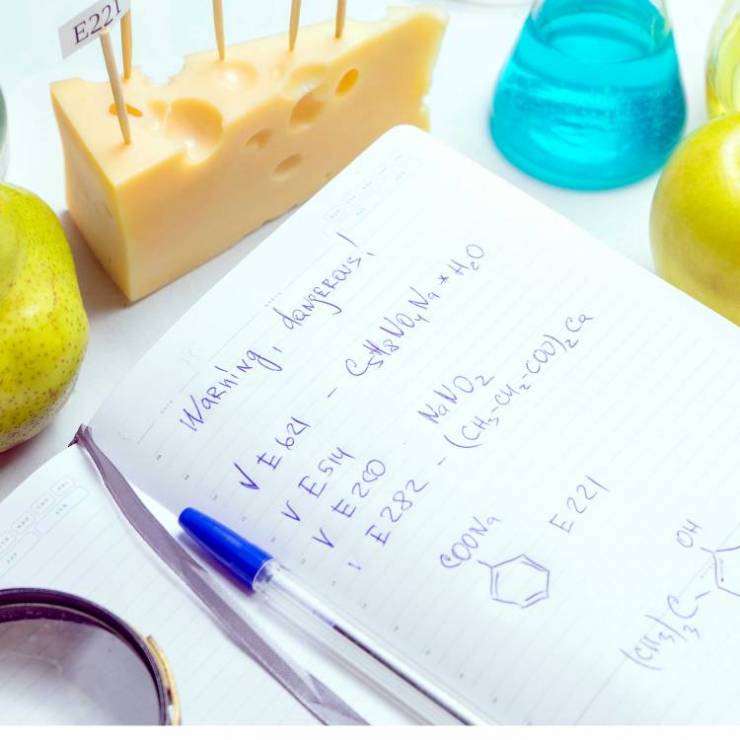 E221
Warning, dangerous!
V E621 - C5H8NO4Na * H2O
V E514
V E200 NaNO2
E282 - (CH3-CH2-COO)2Ca
COONa
E221
OH
(CH3)3C